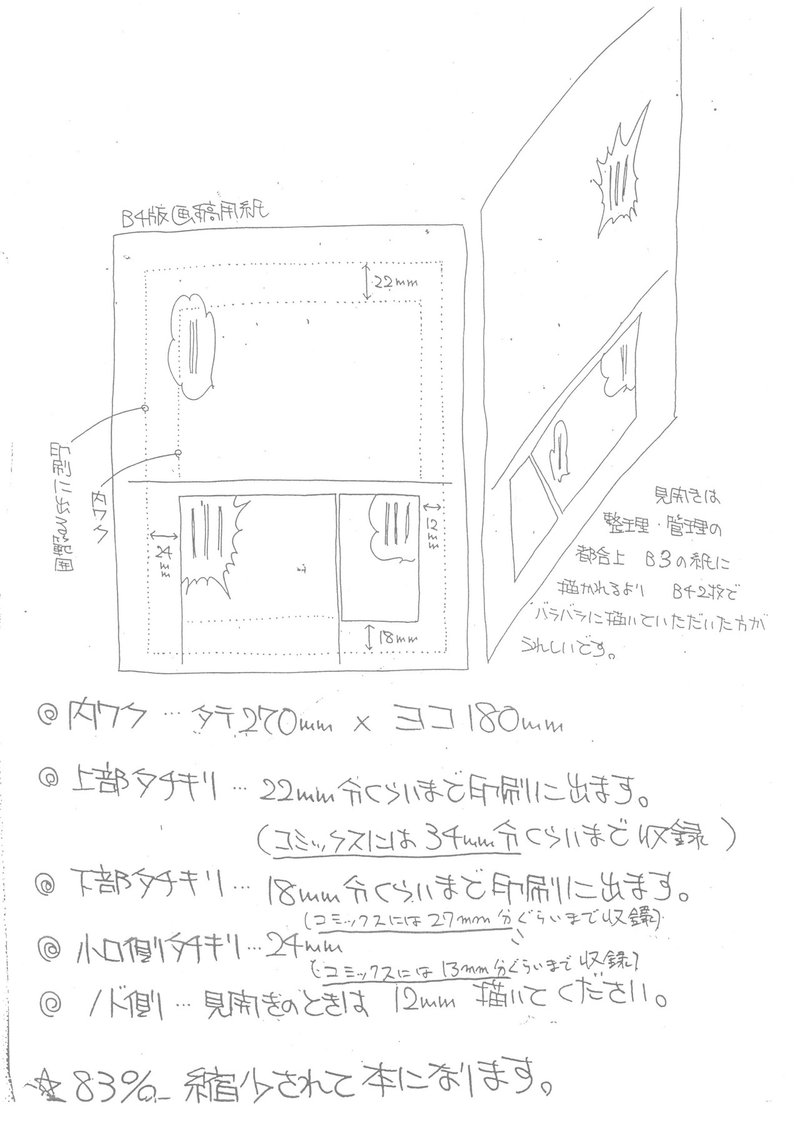 B4版画稿用紙
22mm
印刷に出る範囲
内ワク
24mm
12mm
18mm
見開きは
整理・管理の
都合上 B3の紙に
描かれるより B4 2枚で
バラバラに描いていただいた方が
うれしいです。
◎ 内ワク … タテ270mm × ヨコ180mm
◎ 上部タチキリ … 22mm分くらいまで印刷に出ます。
(コミックスには34mm分くらいまで収録)
◎ 下部タチキリ … 18mm分くらいまで印刷に出ます。
(コミックスには27mm分ぐらいまで収録)
◎ 小口側タチキリ … 24mm 〃
(コミックスには13mm分ぐらいまで収録)
◎ ノド側 … 見開きのときは 12mm 描いてください。
☆ 83% 縮少されて本になります。